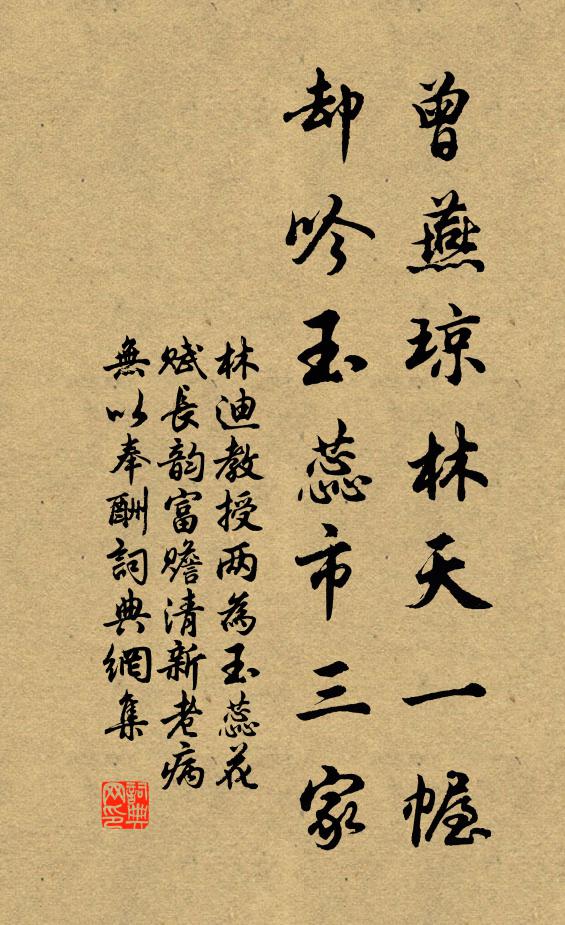 曾燕琼林天一幄
却吟玉蕊市三家
林迪教授两為玉蕊花
賦長韵富贍清新老病
無以奉酬詞典網集
詞典
网印